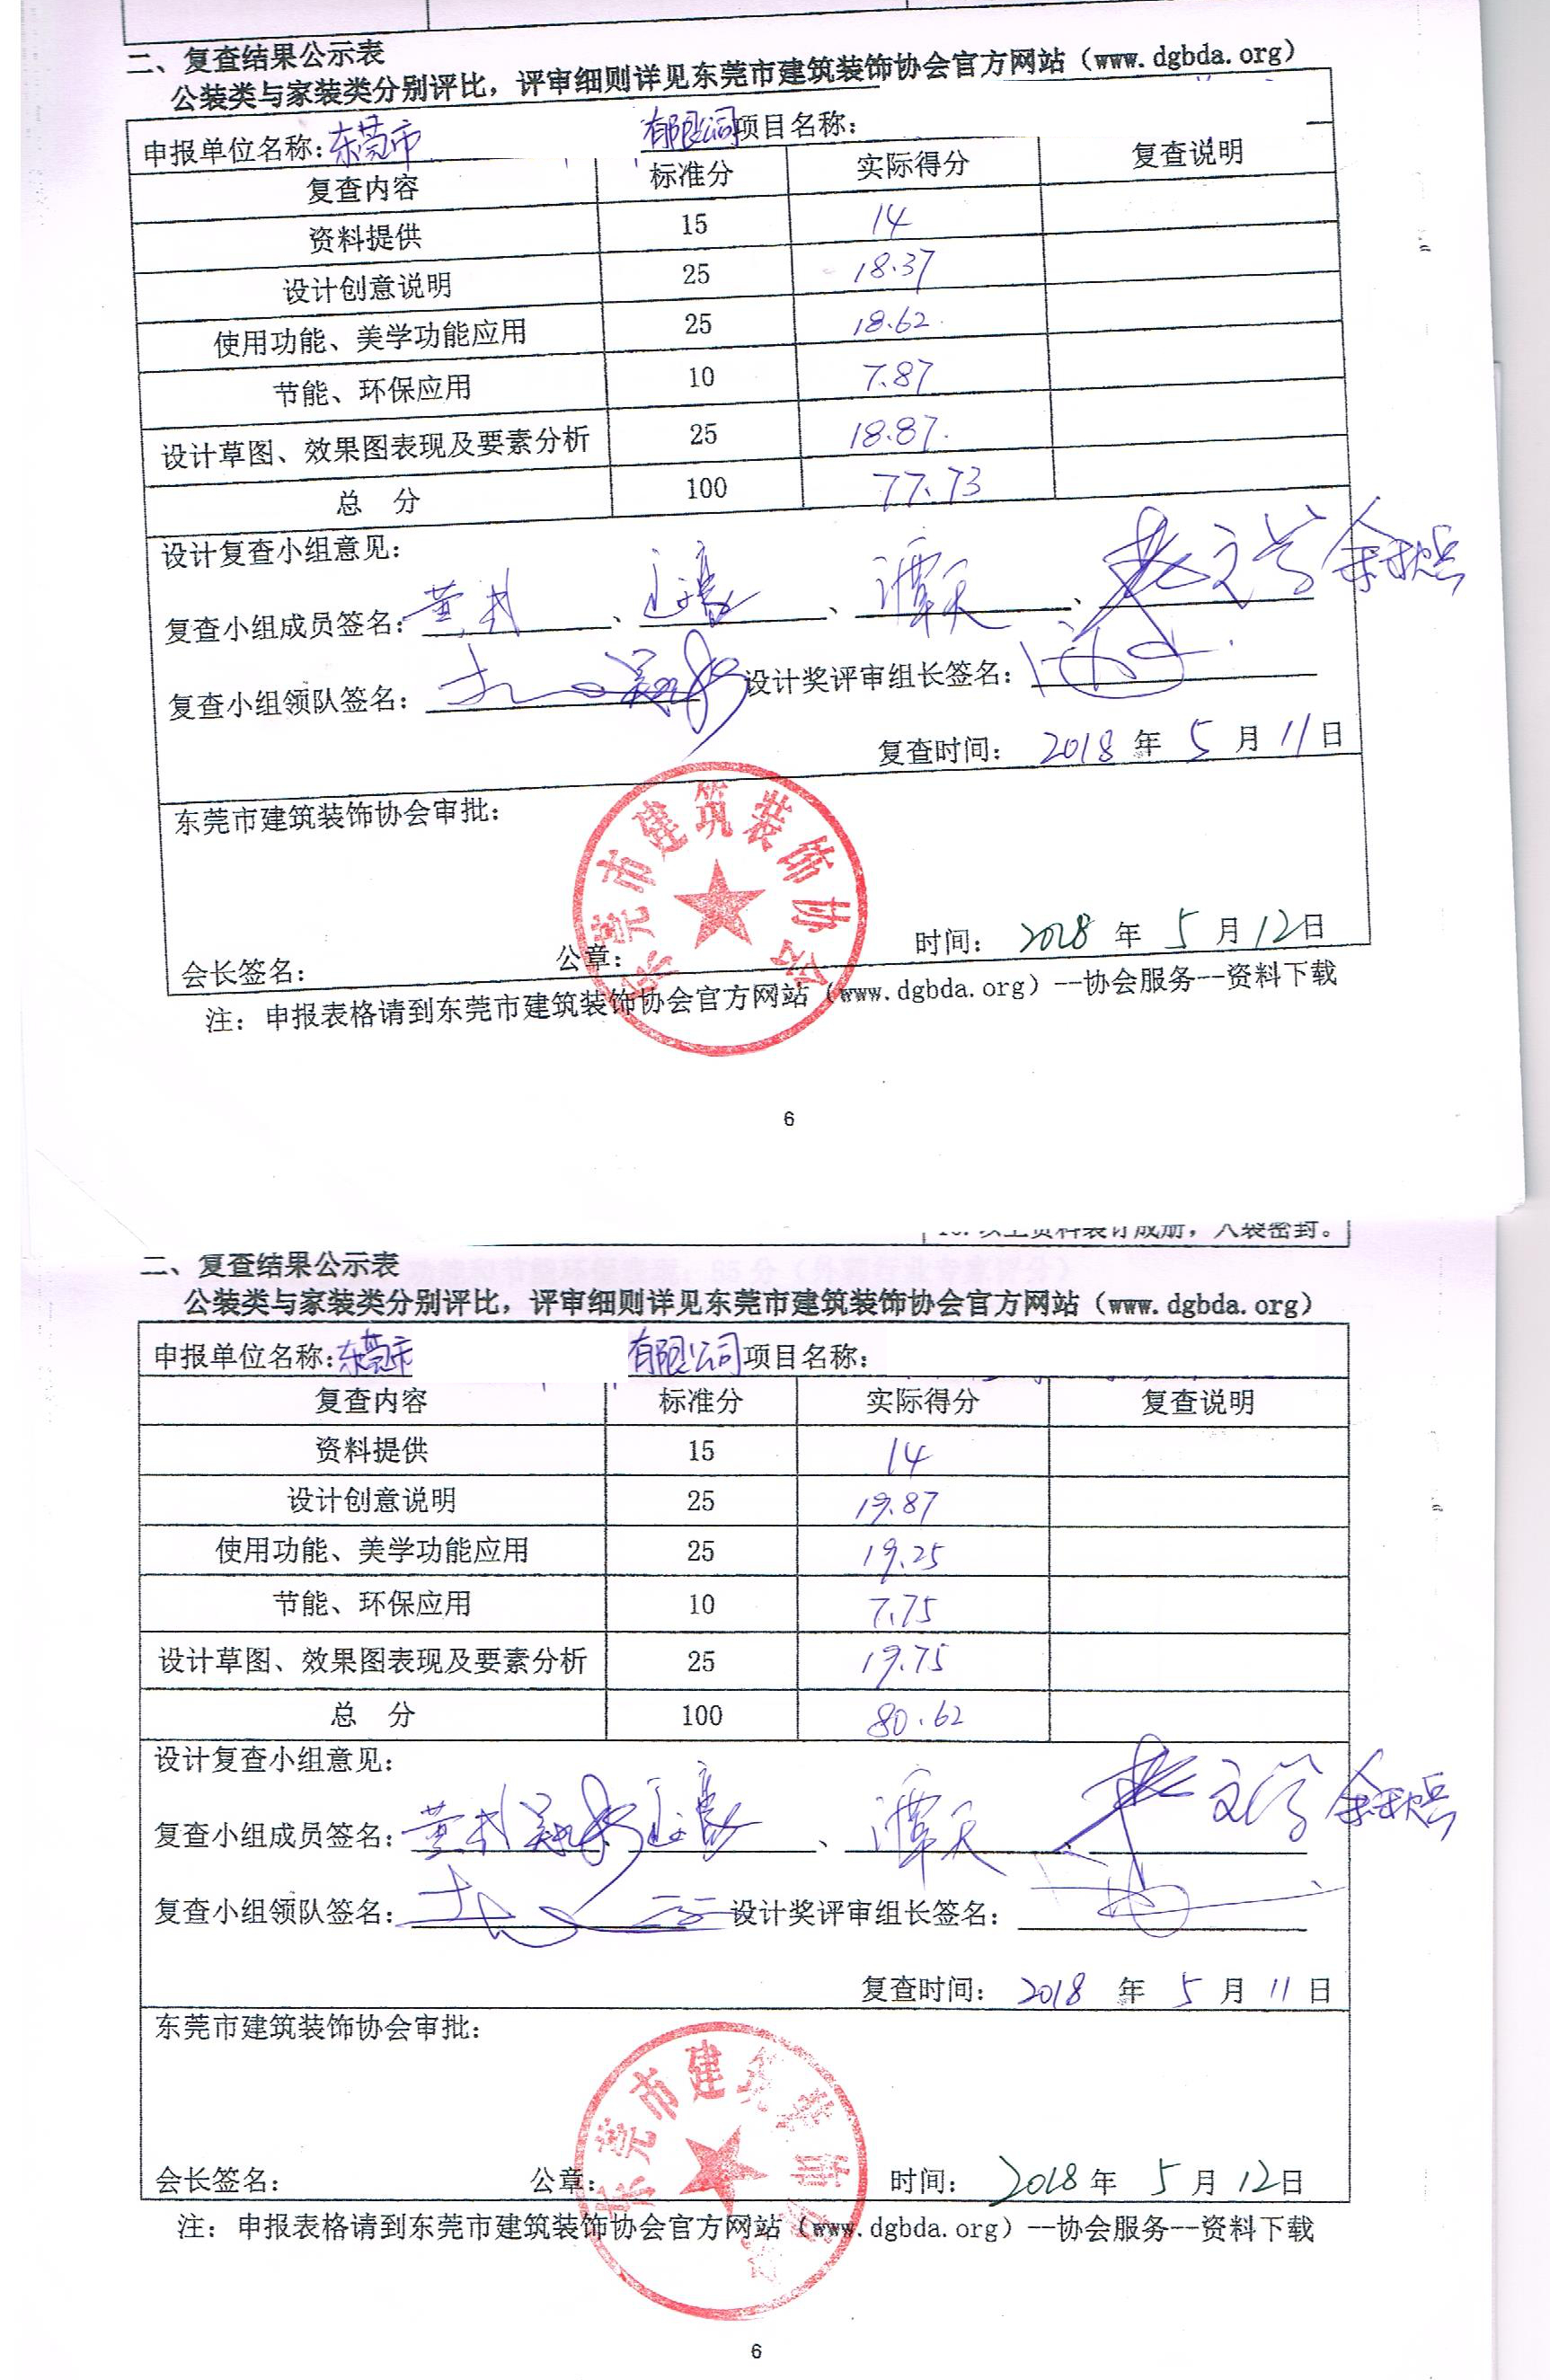 二、复查结果公示表
公装类与家装类分别评比，评审细则详见东莞市建筑装饰协会官方网站（www.dgbda.org）
申报单位名称：东莞市 有限公司项目名称：
复查内容 标准分 实际得分 复查说明
资料提供 15 14
设计创意说明 25 18.37
使用功能、美学功能应用 25 18.62
节能、环保应用 10 7.87
设计草图、效果图表现及要素分析 25 18.87
总 分 100 77.73
设计复查小组意见：
复查小组成员签名： 、 、 谭天 、
复查小组领队签名： 设计奖评审组长签名：
复查时间： 2018 年 5 月 11 日
东莞市建筑装饰协会审批：
东莞市建筑装饰协会
会长签名： 公章： 时间： 2018 年 5 月 12 日
注：申报表格请到东莞市建筑装饰协会官方网站（www.dgbda.org）--协会服务--资料下载
6
以上资料装订成册，入袋密封。
二、复查结果公示表
公装类与家装类分别评比，评审细则详见东莞市建筑装饰协会官方网站（www.dgbda.org）
申报单位名称：东莞市 有限公司项目名称：
复查内容 标准分 实际得分 复查说明
资料提供 15 14
设计创意说明 25 19.87
使用功能、美学功能应用 25 19.25
节能、环保应用 10 7.75
设计草图、效果图表现及要素分析 25 19.75
总 分 100 80.62
设计复查小组意见：
复查小组成员签名： 、 谭天
复查小组领队签名： 设计奖评审组长签名：
复查时间： 2018 年 5 月 11 日
东莞市建筑装饰协会审批：
东莞市建筑装饰协会
会长签名： 公章： 时间： 2018 年 5 月 12 日
注：申报表格请到东莞市建筑装饰协会官方网站（www.dgbda.org）--协会服务--资料下载
6